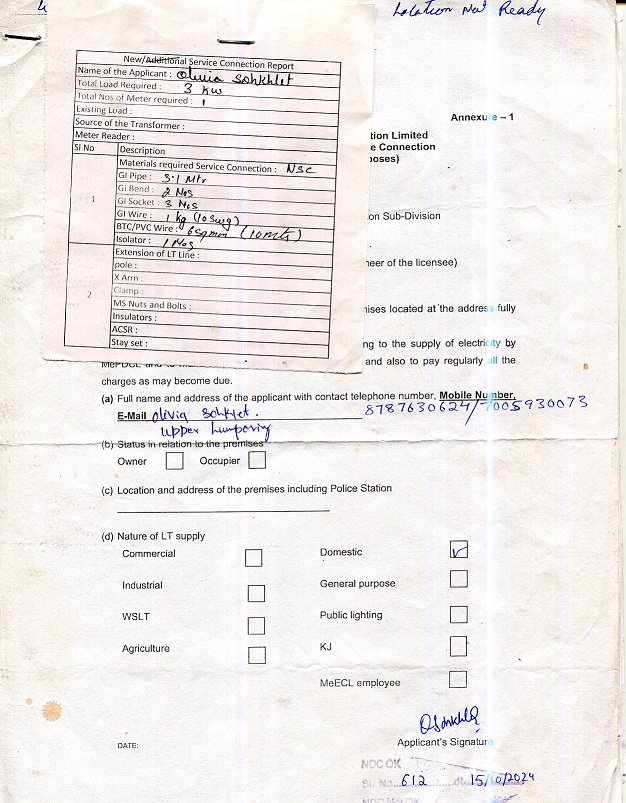 Location Not Ready
New/Additional Service Connection Report
Name of the Applicant : Olivia Sohkhlet
Total Load Required : 3 KW
Total Nos of Meter required : 1
Existing Load :
Source of the Transformer :
Meter Reader :
Sl No Description
Materials required Service Connection : NSC
GI Pipe : 3.1 Mtr
1 Gi Bend : 2 Nos
GI Socket : 3 Nos
GI Wire : 1 kg (10 swg)
BTC/PVC Wire : 6sqmm (10mts)
Isolator : 1 Nos
Extension of LT Line :
pole :
X Arm :
2 Clamp :
MS Nuts and Bolts :
Insulators :
ACSR :
Stay set :
Annexure – 1
tion Limited
e Connection
oses)
on Sub-Division
neer of the licensee)
ises located at the address fully
ng to the supply of electricity by
and also to pay regularly all the
charges as may become due.
(a) Full name and address of the applicant with contact telephone number, Mobile Number,
E-Mail Olivia Sohklet. 8787630624/7005930073
Upper
(b) Status in relation to the premises
Owner Occupier
(c) Location and address of the premises including Police Station
(d) Nature of LT supply
Commercial Domestic
Industrial General purpose
WSLT Public lighting
Agriculture KJ
MeECL employee
DATE: Applicant's Signature
NDC OK
SL No. 612 dt. 15/10/2024